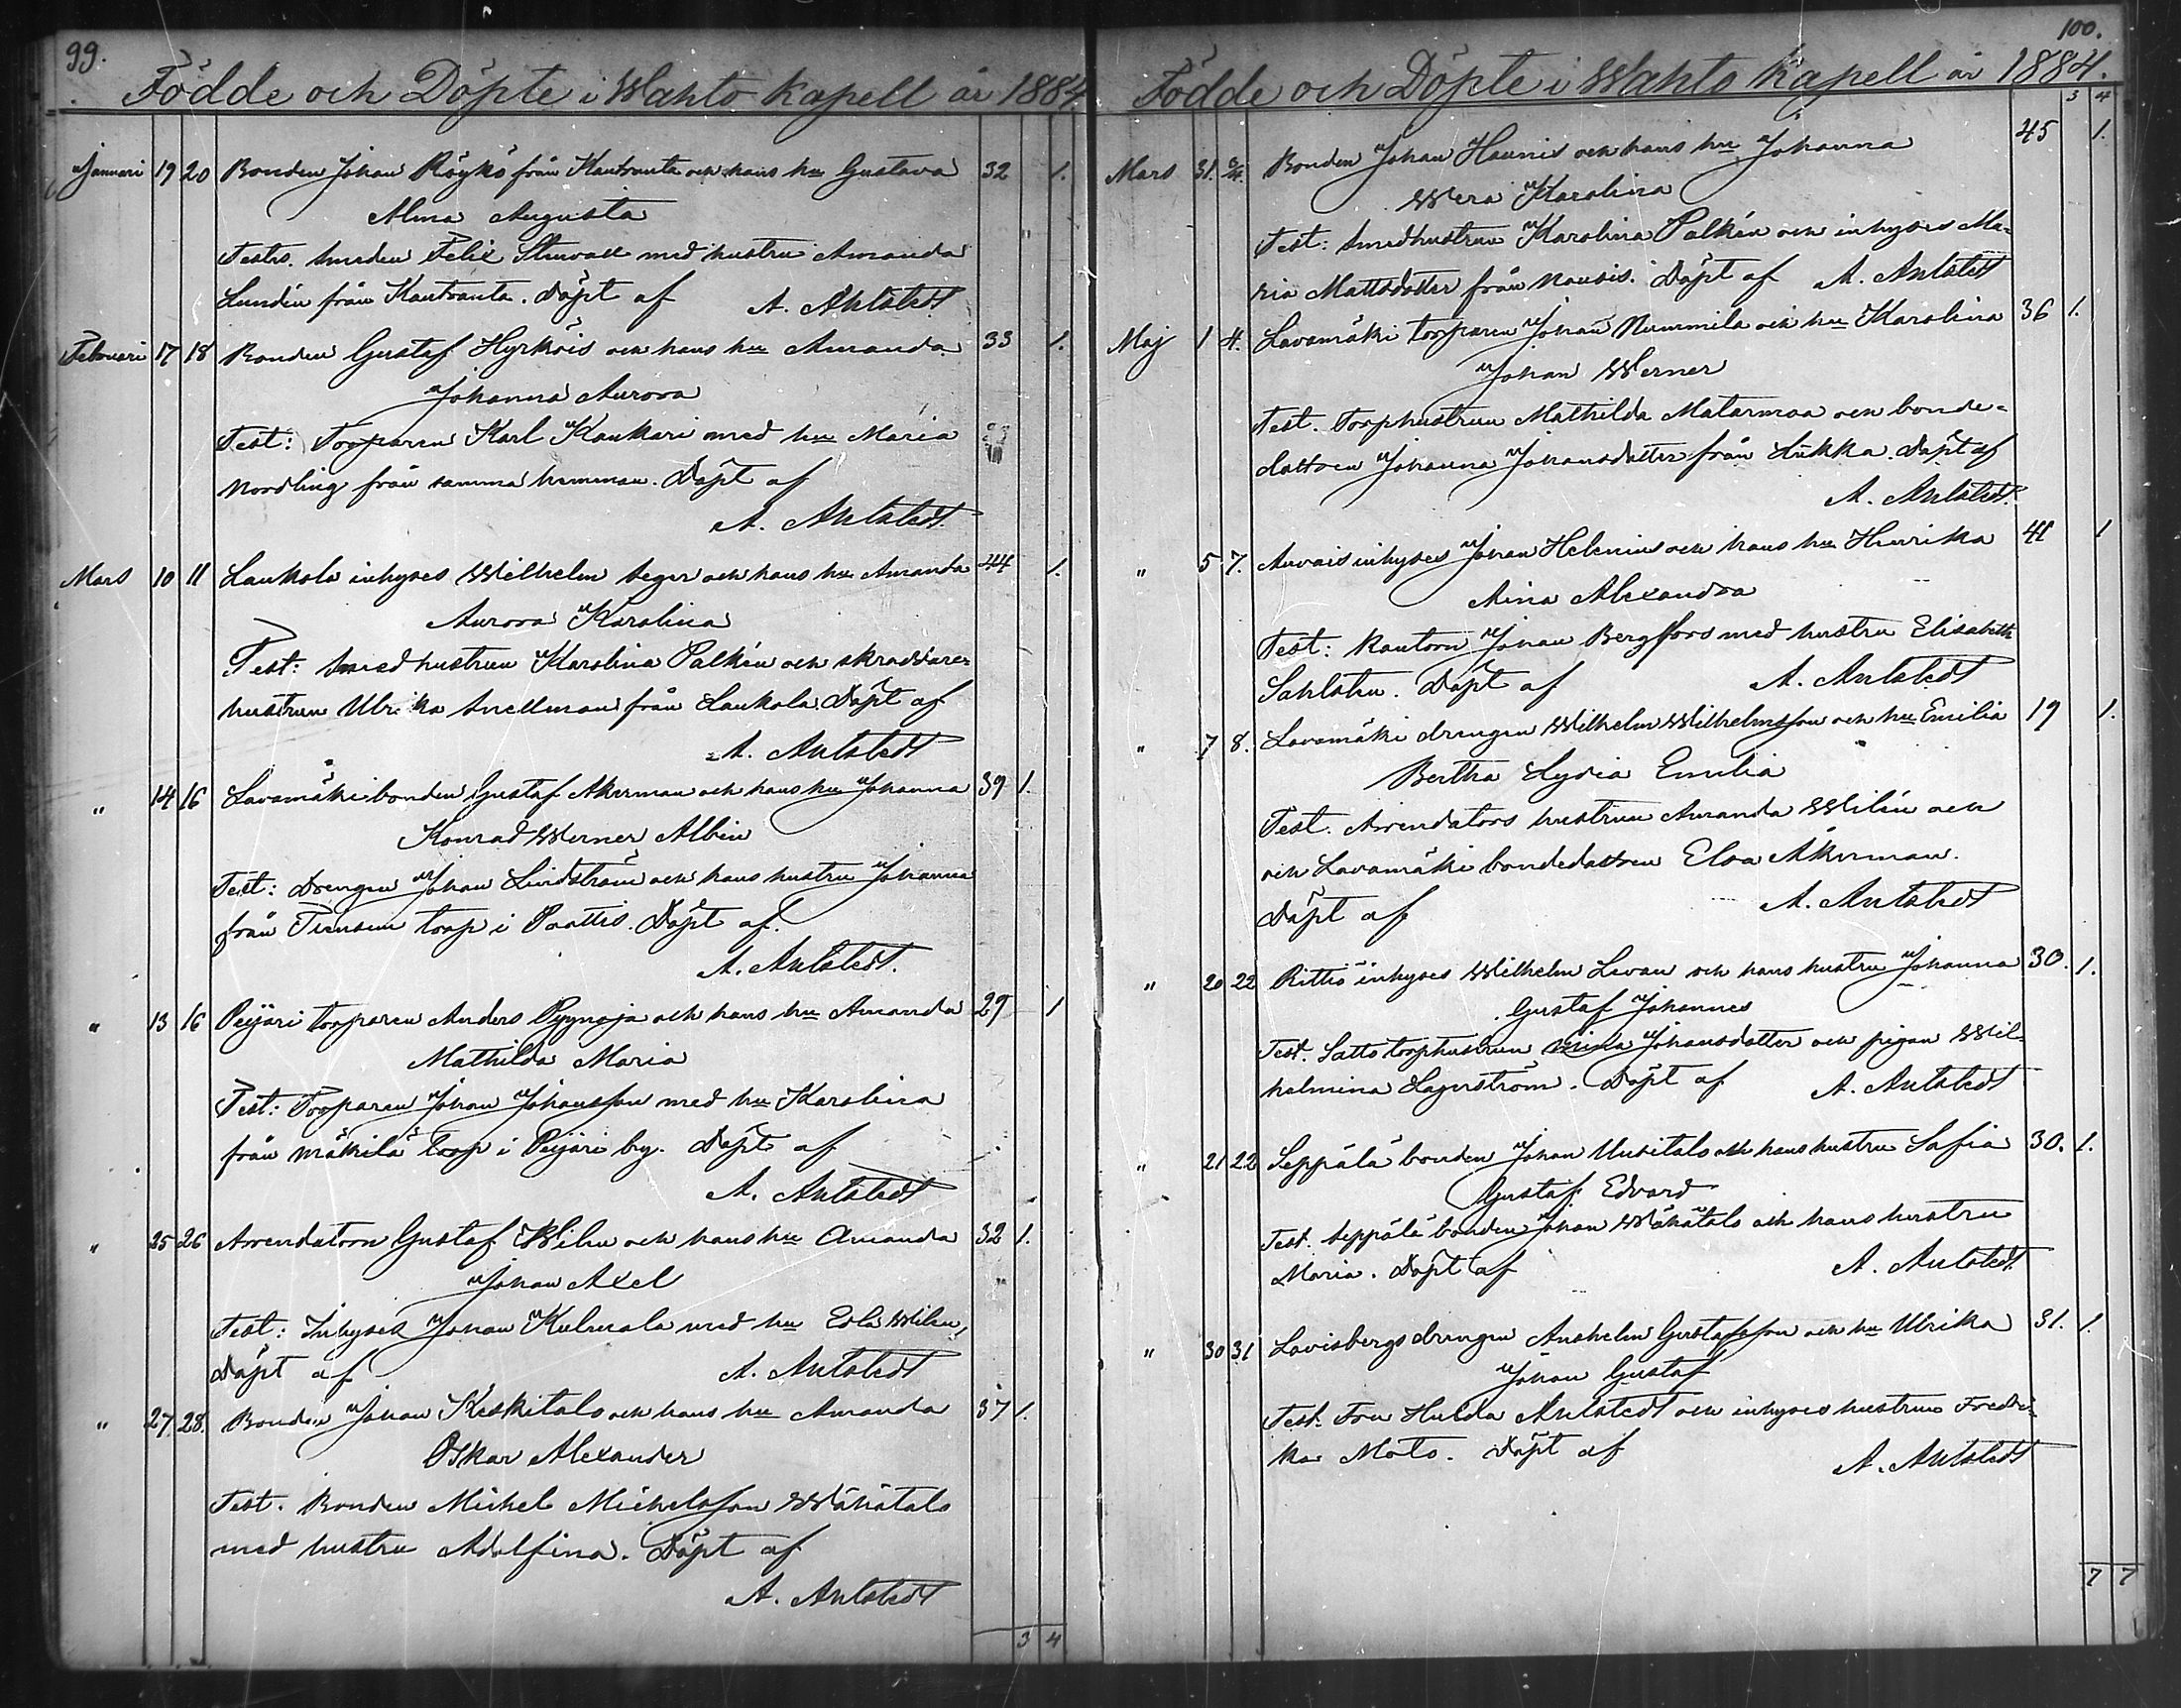 99.
Födde och Döpte i Wahto kapell år 1884.
Januari 19 20 Bonden Johan Röykö från Kautranta och hans hu Gustava 32 1.
Alma Augusta
Testes. Smeden Felix med hustru Amanda
Lundén från Kautranta. Döpt af A. Ahlstedt
Februari 17 18 Bonden Gustaf Hyrköis och hans hu Amanda 33 1.
Johanna Aurora
Test: Torparen Karl Kaukari med hu Maria
Nordling från samma hemman. Döpt af
A. Ahlstedt.
Mars 10 11 Laukola inhyses Wilhelm Seger och hans hu Amanda 44 1.
Aurora Karolina
Test: Smedhustrun Karolina Palkén och skraddare-
hustrun Ulrika Snellman från Laukola Döpt af
A. Ahlstedt
" 14 16 Lavamäki bonden Gustaf Åkerman och hans hu Johanna 39 1.
Konrad Werner Albin
Test: Drengen Johan Lindström och hans hustru Johanna
från torp i Paattis. Döpt af.
A. Ahlstedt.
" 13 16 Peijäri torparen Anders Pyynoja och hans hu Amanda 29 1
Mathilda Maria
Test: Torparen Johan Johansson med hu Karolina
från Mäkilä torp i Peijäri by. Döpt af
A. Ahlstedt
" 25 26 Arrendatorn Gustaf Wilen och hans hu Amanda 32 1.
Johan Axel
Test: Inhyses Johan Kulmala med hu Eva Wilen,
Döpt af A. Ahlstedt
" 27. 28. Bonden Johan Keskitalo och hans hu Amanda 37 1.
Oskar Alexander
Test. Bonden Mickel Mickelsson Wähätalo
med hustru Adolfina. Döpt af
A. Ahlstedt
3 4
100.
Födde och Döpte i Wahto Kapell år 1884.
3 4
Mars 31. 6/4. Bonden Johan Haunis och hans hu Johanna 45 1.
Wera Karolina
Test: Smedhustrun Karolina Palkén och inhyses Ma-
ria Mattsdotter från Nousis. Döpt af A. Ahlstedt
Maj 1 4. Lavamäki torparen Johan Nummila och hu Karolina 36 1.
Johan Werner
Test. Torphustrun Mathilda Matarmaa och bonde-
dottren Johanna Johansdotter från Hukka. Döpt af
A. Ahlstedt.
" 5 7. Auvais inhyses Johan Helenius och hans hu Henrika 41 1
Aina Alexandra
Test: Kantorn Johan Bergfors med hustru Elisabeth
Sahlsten. Döpt af A. Ahlstedt
" 7 8. Lavamäki drengen Wilhelm Wilhelmsson och hu Emilia 19 1.
Bertha Lydia Emilia
Test. Arrendators hustrun Amanda Wilén och
och Lavamäki bondedottren Elsa Åkerman.
Döpt af A. Ahlstedt
" 20 22 Rittiö inhyses Wilhelm Levan och hans hustru Johanna 30. 1.
Gustaf Johannes
Test. Satto torphustrun Mina Johansdotter och pigan Wil-
helmina Lagerström. Döpt af A. Ahlstedt
" 21 22 Seppälä bonden Johan Uusitalo och hans hustru Sofia 30. 1.
Gustaf Edvard
Test. Seppälä bonden Johan Wähätalo och hans hustru
Maria. Döpt af A. Ahlstedt.
" 30 31 Lovisbergs drengen Anshelm Gustafsson och hu Ulrika 31. 1.
Johan Gustaf
Test. Fru Hulda Ahlstedt och inhyses hustrun Fredri-
ka Moto. Döpt af A. Ahlstedt
7 7